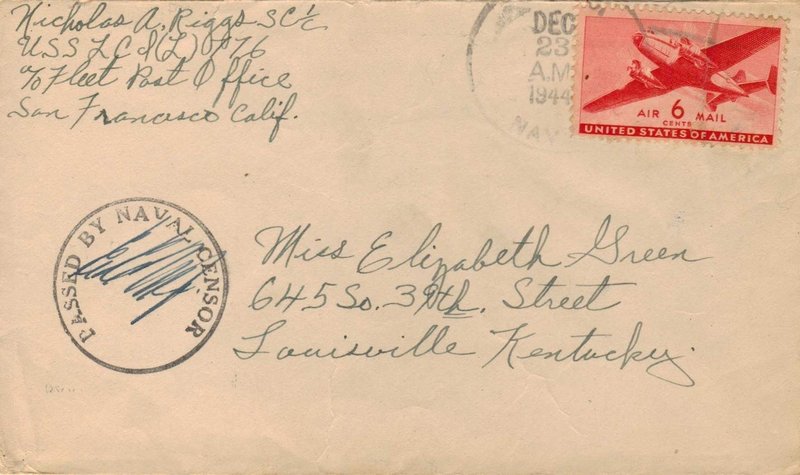 Nicholas A. Riggs SC 1/c
USS LCI(L) 976
c/o Fleet Post Office
San Francisco Calif.
DEC
23
A.M.
1944
NAV
AIR 6 MAIL
CENTS
UNITED STATES OF AMERICA
PASSED BY NAVAL CENSOR
Miss Elizabeth Green
645 So. 39th. Street
Louisville Kentucky.